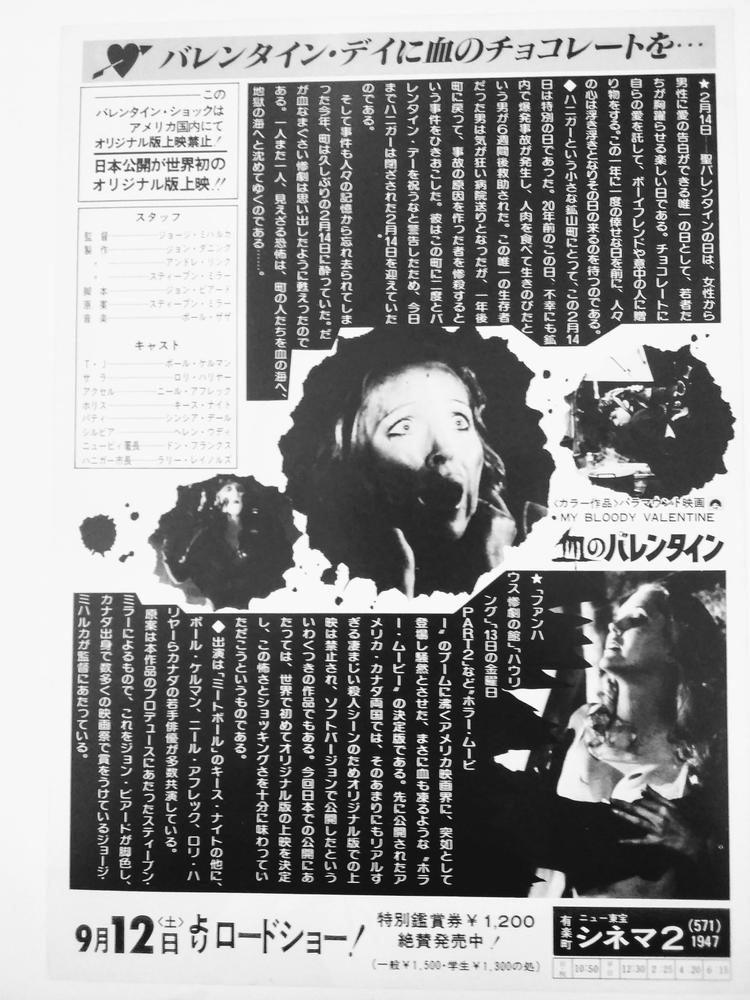 バレンタイン・デイに血のチョコレートを…
この
バレンタイン・ショックは
アメリカ国内にて
オリジナル版上映禁止!
日本公開が世界初の
オリジナル版上映!!
スタッフ
監督 ジョージ・ミハルカ
製作 ジョン・ダニング
〃 アンドレ・リンク
〃 スティーブン・ミラー
脚本 ジョン・ビアード
原案 スティーブン・ミラー
音楽 ポール・ザザ
キャスト
T・J ポール・ケルマン
サラ ロリ・ハリヤー
アクセル ニール・アフレック
ホリス キース・ナイト
パティ シンシア・デール
シルビア ヘレン・ウディ
ニュービィ署長 ドン・フランクス
ハニガー市長 ラリー・レイノルズ
★2月14日―聖バレンタインの日は、女性から
男性に愛の告白ができる唯一の日として、若者た
ちが胸躍らせる楽しい日である。チョコレートに
自らの愛を託して、ボーイフレンドや意中の人に贈
り物をする。この一年に一度の倖せな日を前に、人々
の心は浮き浮きとなりその日の来るのを待つのである。
◆ハニガーという小さな鉱山町にとって、この2月14
日は特別の日であった。20年前のこの日、不幸にも鉱
内で爆発事故が発生し、人肉を食べて生きのびたと
いう男が6週間後救助された。この唯一の生存者
だった男は気が狂い病院送りとなったが、一年後
町に戻って、事故の原因を作った者を惨殺すると
いう事件をひきおこした。彼はこの町に二度とバ
レンタイン・デーを祝うなと警告したため、今日
までハニガーは閉ざされた2月14日を迎えていた
のである。
そして事件も人々の記憶から忘れ去られてしま
った今年、町は久しぶりの2月14日に酔っていた。だ
が血なまぐさい惨劇は思い出したように甦えったので
ある。一人また一人、見えざる恐怖は、町の人たちを血の海へ、
地獄の海へと沈めてゆくのである……。
〈カラー作品〉パラマウント映画
MY BLOODY VALENTINE
血のバレンタイン
★「ファンハ
ウス惨劇の館」「ハウリ
ング」「13日の金曜日
PART2」など〝ホラー・ムービ
ー〟のブームに沸くアメリカ映画界に、突如として
登場し騒然とさせた、まさに血も凍るような〝ホラ
ー・ムービー〟の決定版である。先に公開されたア
メリカ・カナダ両国では、そのあまりにもリアルす
ぎる凄ましい殺人シーンのためオリジナル版での上
映は禁止され、ソフトバージョンで公開したという
いわくつきの作品でもある。今回日本での公開にあ
たっては、世界で初めてオリジナル版の上映を決定
し、この怖さとショッキングさを十分に味わってい
ただこうというものである。
◆出演は「ミートボール」のキース・ナイトの他に、
ポール・ケルマン、ニール・アフレック、ロリ・ハ
リヤーらカナダの若手俳優が多数共演している。
原案は本作品のプロデュースにあたったスティーブン・
ミラーによるもので、これをジョン・ビアードが脚色し、
カナダ出身で数多くの映画祭で賞をうけているジョージ・
ミハルカが監督にあたっている。
9月12日〈土〉よりロードショー!
特別鑑賞券¥1,200
絶賛発売中!
(一般¥1,500・学生¥1,300の処)
有楽町 ニュー東宝 シネマ2 (571)1947
10:50 12:30 2:25 4:20 6:15